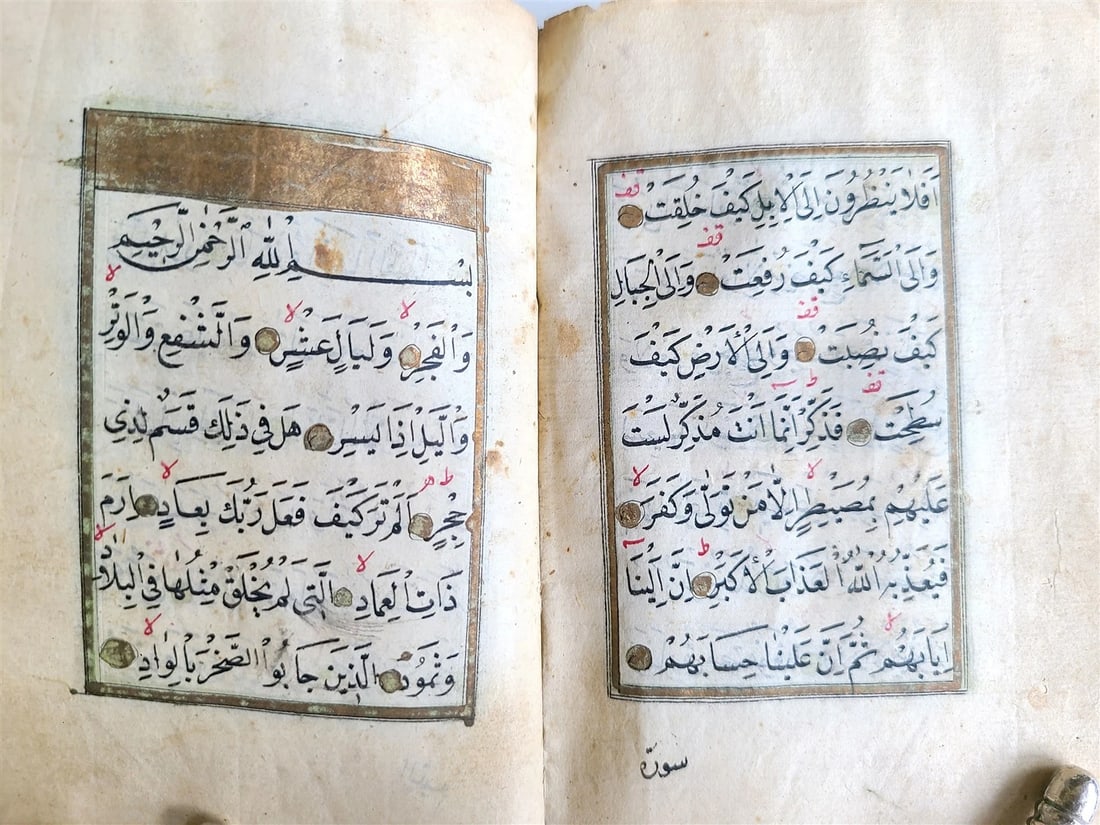 اَفَلَا يَنْظُرُونَ اِلَى الْاِبِلِ كَيْفَ خُلِقَتْ قف
وَاِلَى السَّمَآءِ كَيْفَ رُفِعَتْ قف وَاِلَى الْجِبَالِ
كَيْفَ نُصِبَتْ قف وَاِلَى الْاَرْضِ كَيْفَ
سُطِحَتْ قف فَذَكِّرْ اِنَّمَا اَنْتَ مُذَكِّرٌ ط لَسْتَ
عَلَيْهِمْ بِمُصَيْطِرٍ لا اِلَّا مَنْ تَوَلّٰى وَكَفَرَ لا
فَيُعَذِّبُهُ اللّٰهُ الْعَذَابَ الْاَكْبَرَ ط اِنَّ اِلَيْنَا
اِيَابَهُمْ لا ثُمَّ اِنَّ عَلَيْنَا حِسَابَهُمْ
سورة
بِسْمِ اللّٰهِ الرَّحْمٰنِ الرَّحِيمِ
وَالْفَجْرِ لا وَلَيَالٍ عَشْرٍ لا وَالشَّفْعِ وَالْوَتْرِ لا
وَالَّيْلِ اِذَا يَسْرِ هَلْ فِى ذٰلِكَ قَسَمٌ لِذِى
حِجْرٍ ط اَلَمْ تَرَ كَيْفَ فَعَلَ رَبُّكَ بِعَادٍ لا اِرَمَ
ذَاتِ الْعِمَادِ لا اَلَّتِى لَمْ يُخْلَقْ مِثْلُهَا فِى الْبِلَادِ لا
وَثَمُودَ الَّذِينَ جَابُوا الصَّخْرَ بِالْوَادِ لا